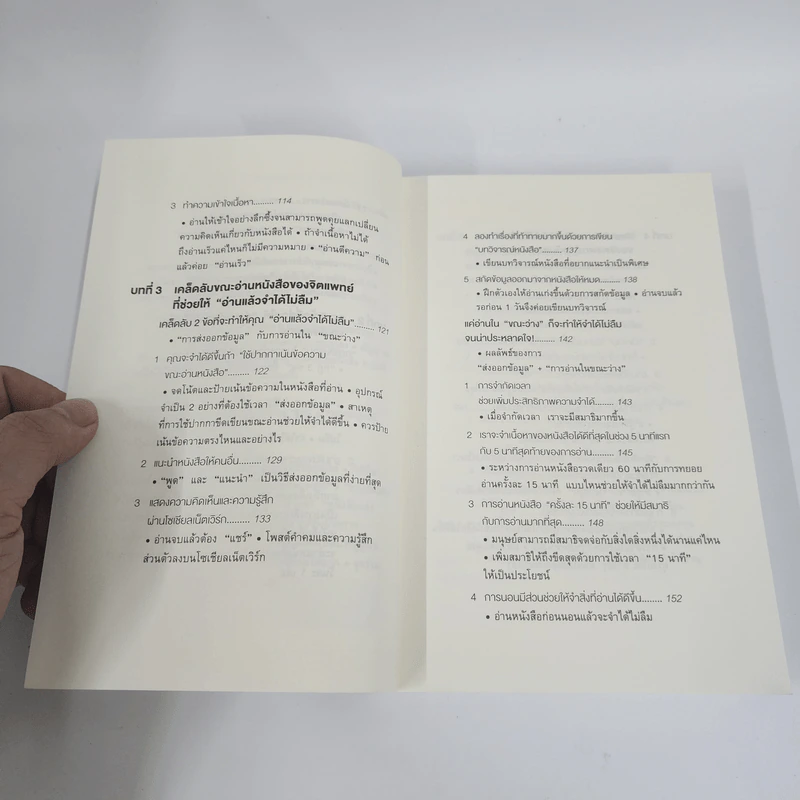 3 ทำความเข้าใจเนื้อหา......... 114
• อ่านให้เข้าใจอย่างลึกซึ้งจนสามารถพูดคุยแลกเปลี่ยน
ความคิดเห็นเกี่ยวกับหนังสือได้ • ถ้าจำเนื้อหาไม่ได้
ถึงอ่านเร็วแค่ไหนก็ไม่มีความหมาย • “อ่านตีความ” ก่อน
แล้วค่อย “อ่านเร็ว”
บทที่ 3 เคล็ดลับขณะอ่านหนังสือของจิตแพทย์
ที่ช่วยให้ “อ่านแล้วจำได้ไม่ลืม”
เคล็ดลับ 2 ข้อที่จะทำให้คุณ “อ่านแล้วจำได้ไม่ลืม”......... 121
• “การส่งออกข้อมูล” กับการอ่านใน “ขณะว่าง”
1 คุณจะจำได้ดีขึ้นถ้า “ใช้ปากกาเน้นข้อความ
ขณะอ่านหนังสือ”......... 122
• จดโน้ตและป้ายเน้นข้อความในหนังสือที่อ่าน • อุปกรณ์
จำเป็น 2 อย่างที่ต้องใช้เวลา “ส่งออกข้อมูล” • สาเหตุ
ที่การใช้ปากกาขีดเขียนขณะอ่านช่วยให้จำได้ดีขึ้น • ควรป้าย
เน้นข้อความตรงไหนและอย่างไร
2 แนะนำหนังสือให้คนอื่น......... 129
• “พูด” และ “แนะนำ” เป็นวิธีส่งออกข้อมูลที่ง่ายที่สุด
3 แสดงความคิดเห็นและความรู้สึก
ผ่านโซเชียลเน็ตเวิร์ก......... 133
• อ่านจบแล้วต้อง “แชร์” • โพสต์คำคมและความรู้สึก
ส่วนตัวลงบนโซเชียลเน็ตเวิร์ก
4 ลองทำเรื่องที่ท้าทายมากขึ้นด้วยการเขียน
“บทวิจารณ์หนังสือ”......... 137
• เขียนบทวิจารณ์หนังสือที่อยากแนะนำเป็นพิเศษ
5 สกัดข้อมูลออกมาจากหนังสือให้หมด......... 138
• ฝึกตัวเองให้อ่านเก่งขึ้นด้วยการสกัดข้อมูล • อ่านจบแล้ว
รอก่อน 1 วันจึงค่อยเขียนบทวิจารณ์
แค่อ่านใน “ขณะว่าง” ก็จะทำให้จำได้ไม่ลืม
จนน่าประหลาดใจ!......... 142
• ผลลัพธ์ของการ
“ส่งออกข้อมูล” + “การอ่านในขณะว่าง”
1 การจำกัดเวลา
ช่วยเพิ่มประสิทธิภาพความจำได้......... 143
• เมื่อจำกัดเวลา เราจะมีสมาธิมากขึ้น
2 เราจะจำเนื้อหาของหนังสือได้ดีที่สุดในช่วง 5 นาทีแรก
กับ 5 นาทีสุดท้ายของการอ่าน......... 145
• ระหว่างการอ่านหนังสือรวดเดียว 60 นาทีกับการทยอย
อ่านครั้งละ 15 นาที แบบไหนช่วยให้จำได้ไม่ลืมมากกว่ากัน
3 การอ่านหนังสือ “ครั้งละ 15 นาที” ช่วยให้มีสมาธิ
กับการอ่านมากที่สุด......... 148
• มนุษย์สามารถมีสมาธิจดจ่อกับสิ่งใดสิ่งหนึ่งได้นานแค่ไหน
• เพิ่มสมาธิให้ถึงขีดสุดด้วยการใช้เวลา “15 นาที”
ให้เป็นประโยชน์
4 การนอนมีส่วนช่วยให้จำสิ่งที่อ่านได้ดีขึ้น......... 152
• อ่านหนังสือก่อนนอนแล้วจะจำได้ไม่ลืม